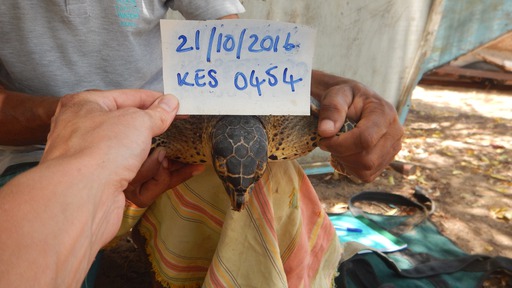 21/10/2016
KES 0454